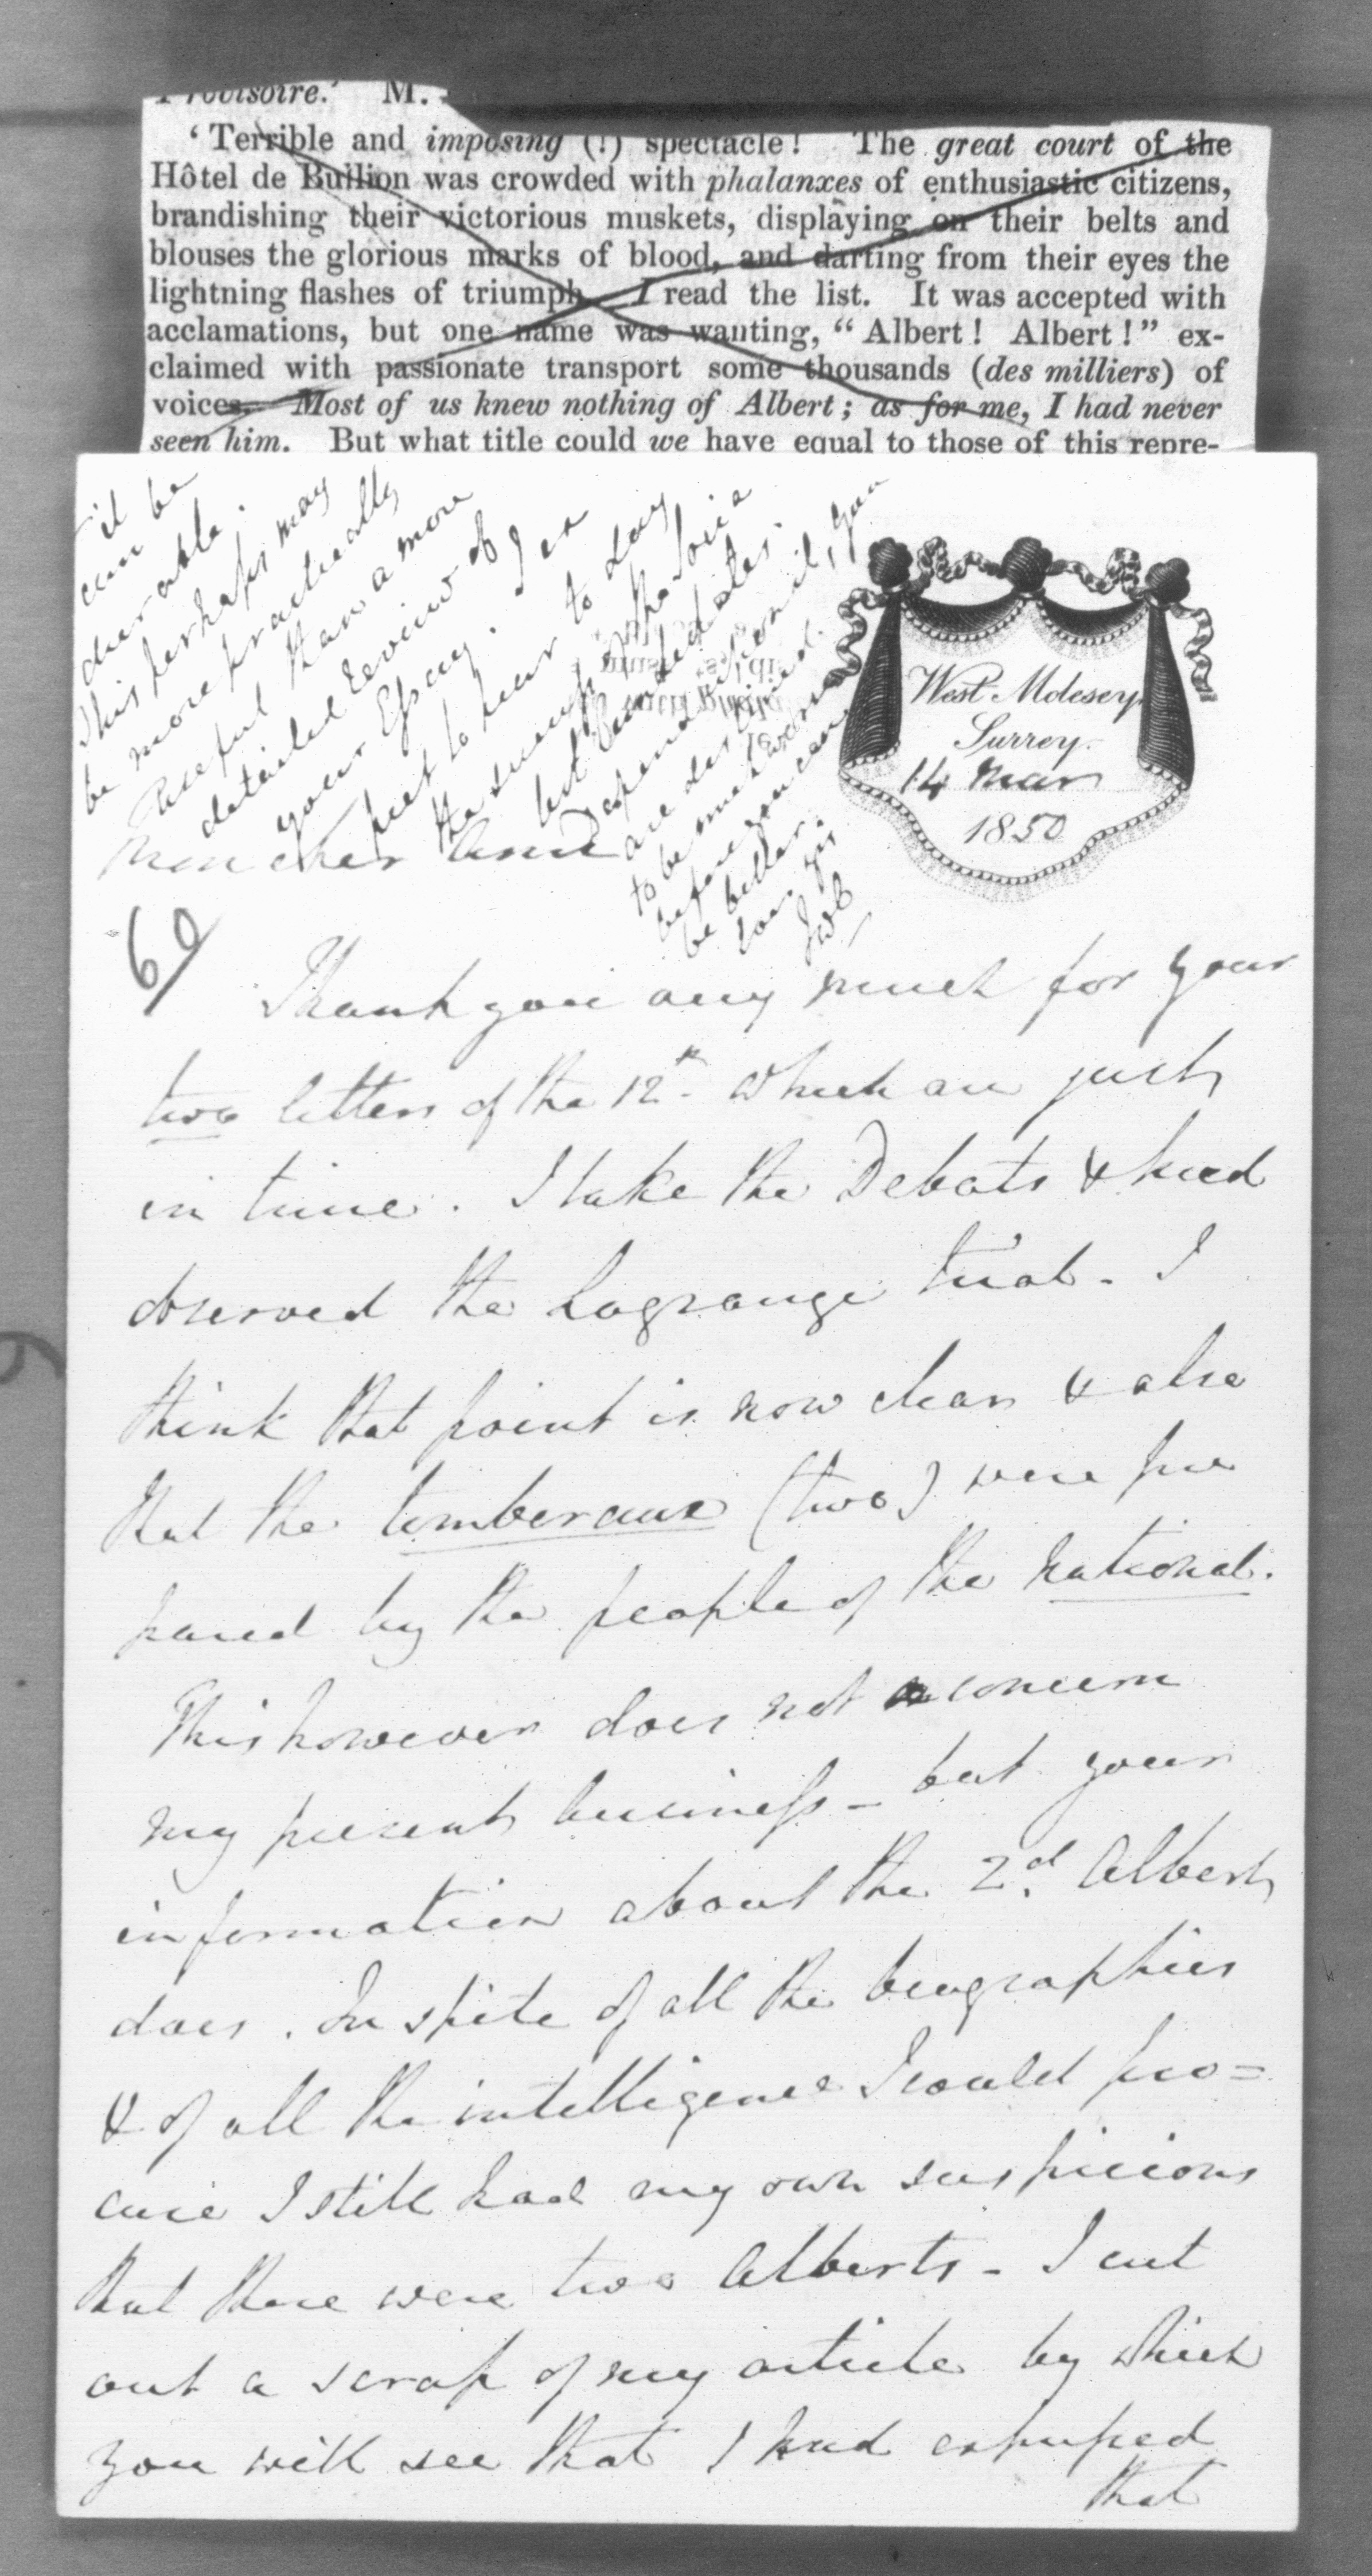 Provisoire.' M.
'Terrible and imposing (!) spectacle! The great court of the
Hôtel de Bullion was crowded with phalanxes of enthusiastic citizens,
brandishing their victorious muskets, displaying on their belts and
blouses the glorious marks of blood, and darting from their eyes the
lightning flashes of triumph. I read the list. It was accepted with
acclamations, but one name was wanting, "Albert! Albert!" ex-
claimed with passionate transport some thousands (des milliers) of
voices. Most of us knew nothing of Albert; as for me, I had never
seen him. But what title could we have equal to those of this repre-
West Molesey
Surrey.
14 Mar
1850
it be
durable.
This perhaps may
be more practically
useful than a more
detailed Review of
your Essay. I am
to hear to day
the
but
depend upon it, you
are destined
to be much worse
before you can
be better.
JWC
Mon cher ami
6)
Thank you very much for your
two letters of the 12th which are just
in time. I take the Debats & had
observed the Lagrange trial - I
think that point is now clear & also
that the tombereaux (two) were pre
pared by the people of the National.
This however does not concern
my present business - but your
information about the 2d. Albert
does. In spite of all the biographies
& of all the intelligence I could pro=
cure I still had my own suspicions
that there were two Alberts - I cut
out a scrap of my article by which
you will see that I had expressed
that